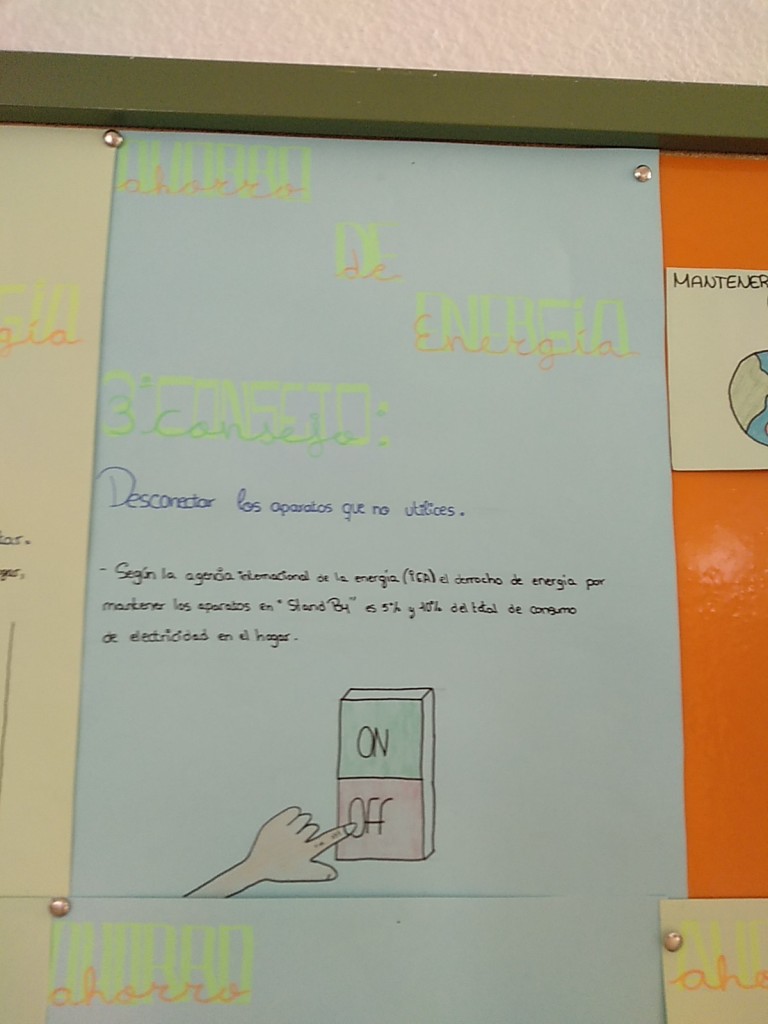 AHORRO
ahorro
DE
de
ENERGÍA
Energía
3º CONSEJO:
3º consejo:
Desconectar los aparatos que no utilices.
- Según la agencia internacional de la energía (IEA) el derroche de energía por
mantener los aparatos en "Stand By" es 5% y 10% del total de consumo
de electricidad en el hogar.
ON
OFF
MANTENER
gía
AHORRO
ahorro